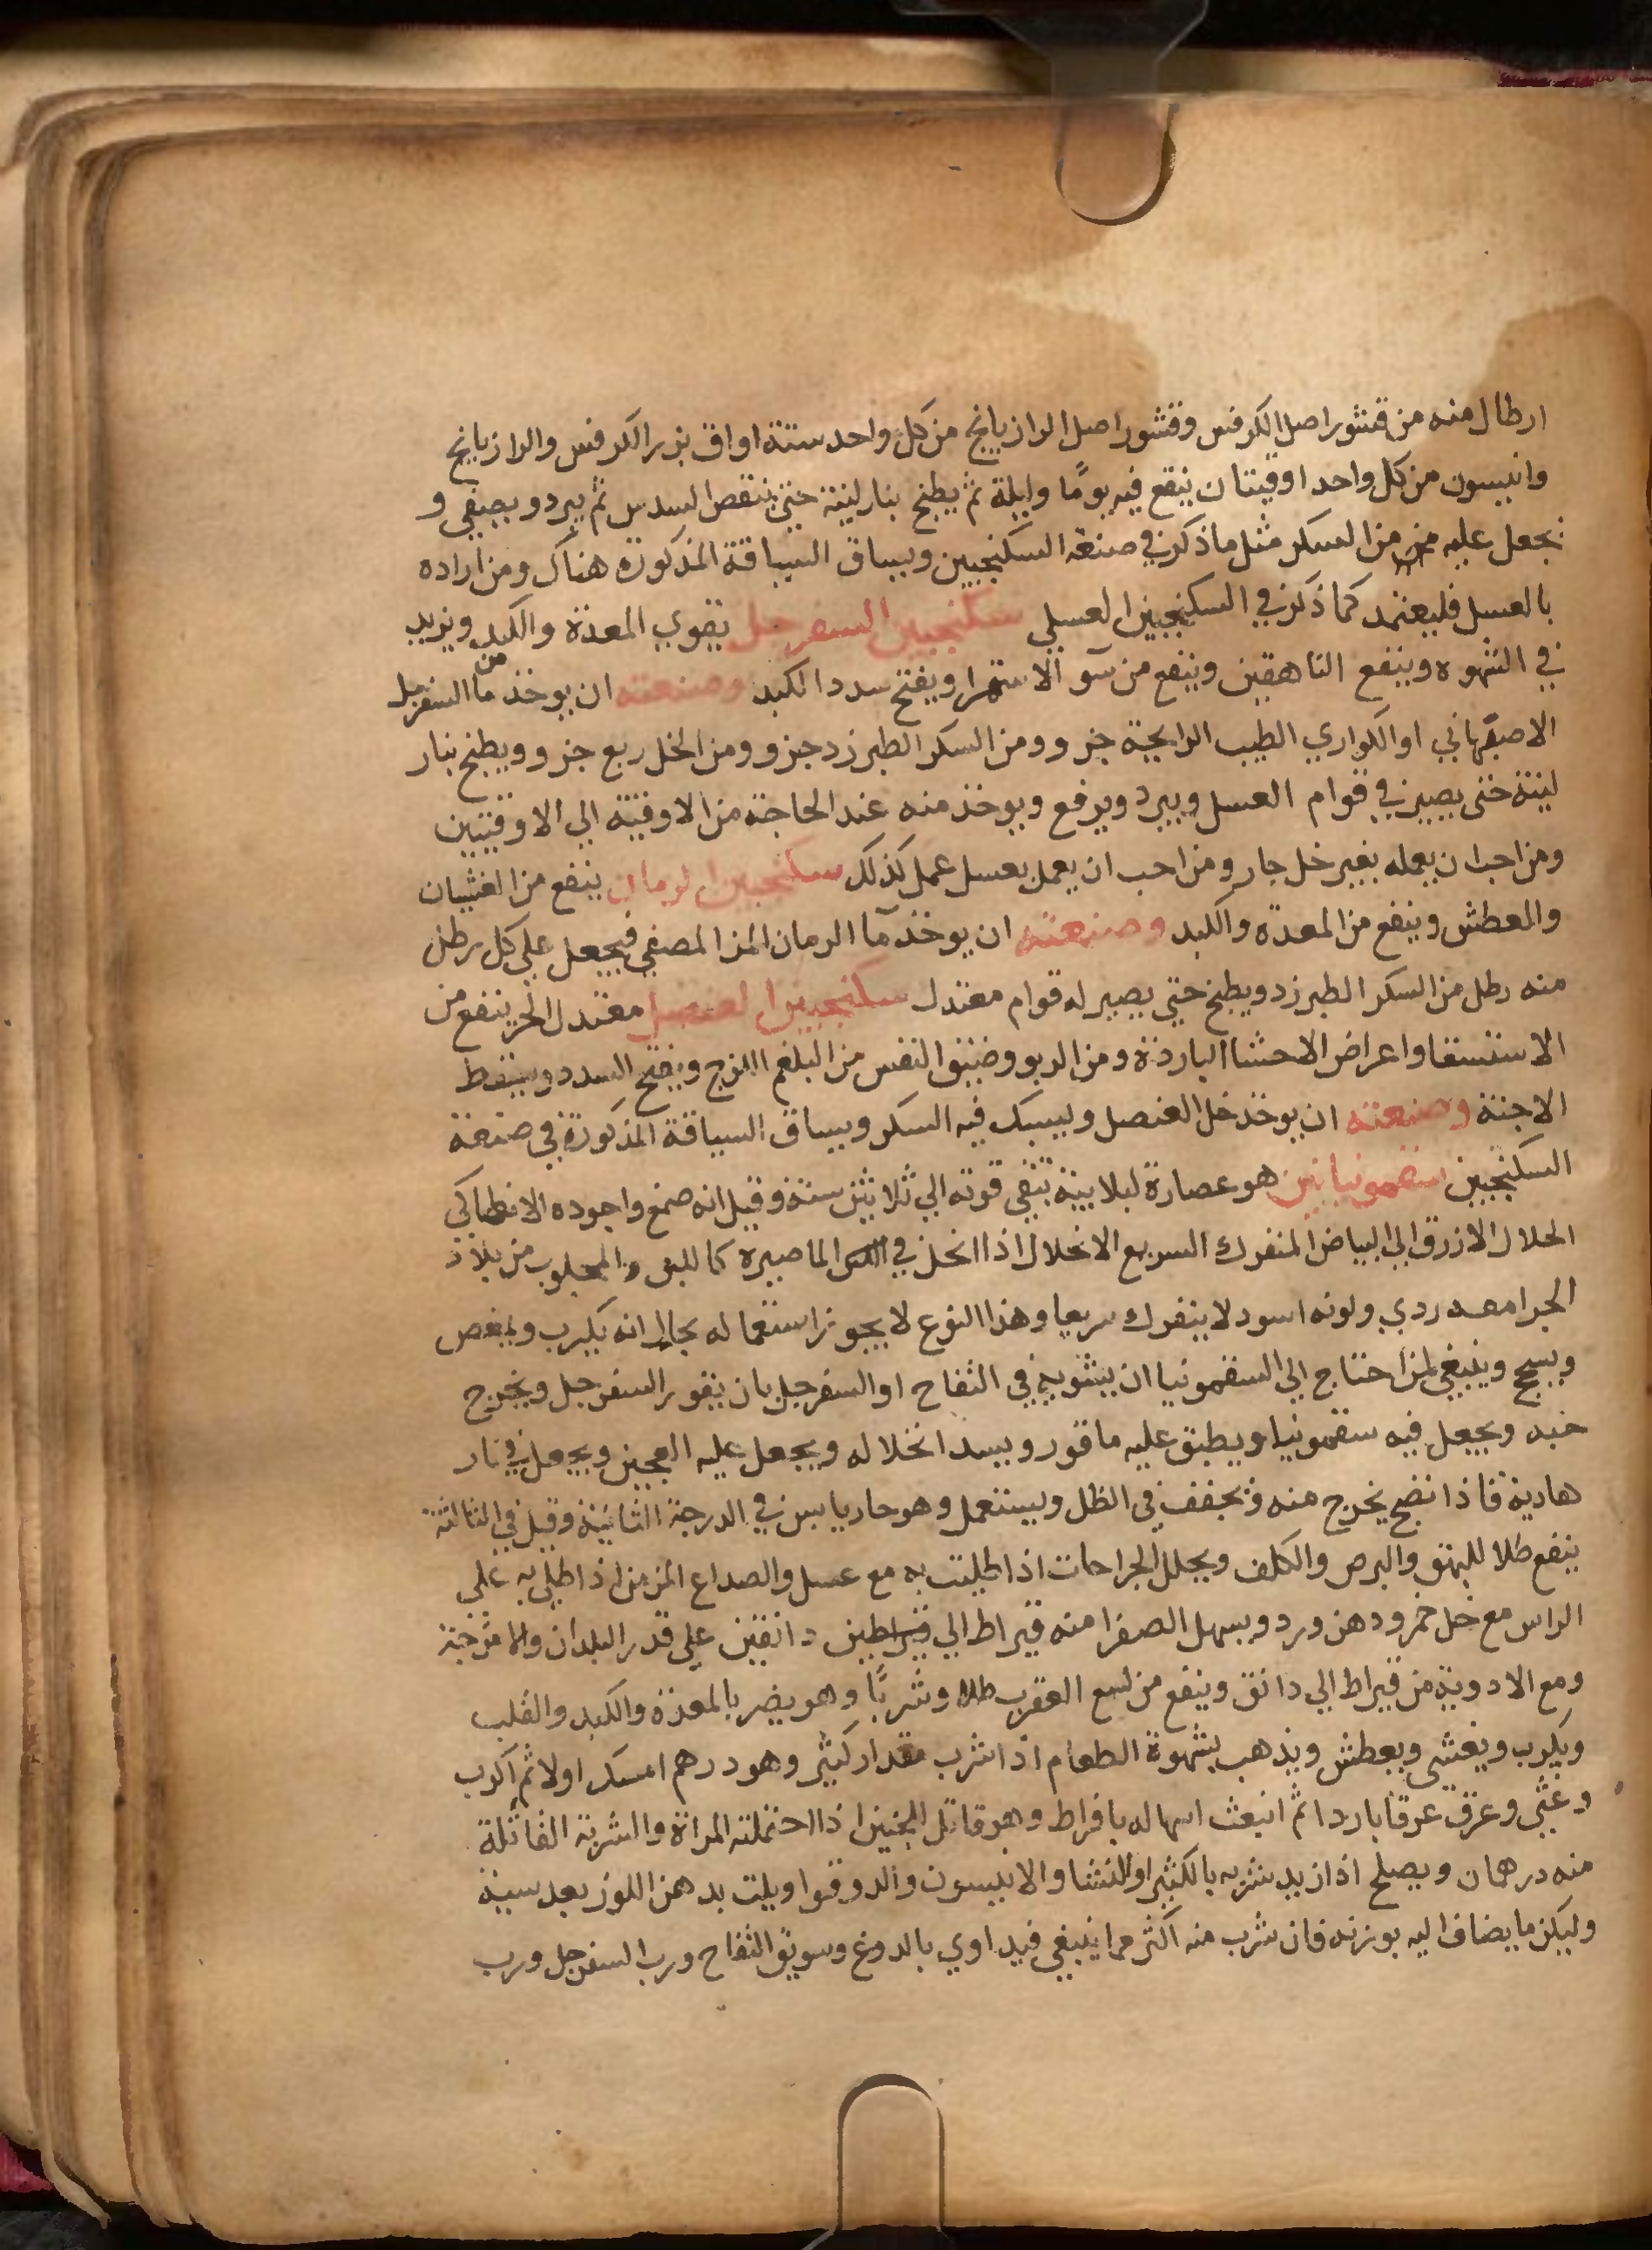 ارطال منه من قشور اصل الكرفس وقشور اصل الرازيانج من كل واحد ستة اواق بزر الكرفس والرازيانج
وانيسون من كل واحد اوقيتان ينقع فيه يومًا وليلة ثم يطبخ بنار لينة حتى ينقص السدس ثم يبرد ويصفي و
يجعل عليه من السكر مثل ما ذكر في صنعة السكنجبين ويساق السياقة المذكورة هناك ومن اراده
بالعسل فليعتمد كما ذكر في السكنجبين العسلي سكنجبين السفرجل يقوي المعدة والكبد ويزيد
في الشهوه وينفع الناهقين وينفع من سو الاستمرا ويفتح سدد الكبد وصنعته ان يوخذ من ما السفرجل
الاصبهاني او الكواري الطيب الرايحة جزو ومن السكر الطبرزد جزو ومن الخل ربع جزو ويطبخ بنار
لينة حتى يصير في قوام العسل ويبرد ويرفع ويوخذ منه عند الحاجة من الاوقية الي الاوقيتين
ومن احب ان يعمله بغير خل جار ومن احب ان يعمل بعسل عمل كذلك سكنجبين الرمان ينفع من الغثيان
والعطش وينفع من المعدة والكبد وصنعته ان يوخذ ما الرمان المز المصفي فيجعل علي كل رطل
منه رطل من السكر الطبرزد ويطبخ حتي يصير له قوام معتدل سكنجبين العنصل معتدل الحر ينفع من
الاستسقا واعراض الاحشا الباردة ومن الربو وضيق النفس من البلغم اللزج ويفتح السدد ويسقط
الاجنة وصنعته ان يوخذ خل العنصل ويسبك فيه السكر ويساق السياقة المذكورة في صنعة
السكنجبين سقمونيا هو عصارة لبلابية تبقي قوته الي ثلاثين سنة وقيل انه صمغ واجوده الانطاكي
الحلال الازرق الي البياض المنفرك السريع الانحلال اذا انحل في الما صيره كاللبن والمجلوب من بلاد
الجرامعه ردي ولونه اسود لا ينفرك سريعا وهذا النوع لا يجوز استعماله بحال انه يكرب ويمغص
ويسحج وينبغي لمن احتاج الي السقمونيا ان يشويه في التفاح او السفرجل بان يقور السفرجل ويخرج
حبه ويجعل فيه سقمونيا ويطبق عليه ما قور ويسد انخلاله ويجعل عليه العجين ويجعل في نار
هادية فاذا نضج يخرج منه ويجفف في الظل ويستعمل وهو حار يابس في الدرجة الثانية وقيل في الثالثة
ينفع طلا للبهق والبرص والكلف ويحلل الجراحات اذا طليت به مع عسل والصداع المزمن اذا طلي به علي
الراس مع خل خمر ودهن ورد ويسهل الصفرا منه قيراط الي قيراطين دانقين علي قدر البلدان والامزجة
ومع الادوية من قيراط الي دانق وينفع من لسع العقرب طلا وشربًا وهو يضر بالمعدة والكبد والقلب
ويكرب ويغشي ويعطش ويذهب بشهوة الطعام اذا شرب مقدار كثير وهو درهم امسك اولا ثم اكرب
وغثي وعرق عرقا باردا ثم انبعث اسهاله بافراط وهو قاتل الجنين اذا احتملته المراة والشربة القاتلة
منه درهمان ويصلح اذا اريد شربه بالكثيرا والنشا والانيسون والدوقوا ويلت بدهن اللوز بعد سيه
وليكن ما يضاف اليه بوزنه فان شرب منه اكثر مما ينبغي فيداوي بالدوغ وسويق التفاح ورب السفرجل ورب